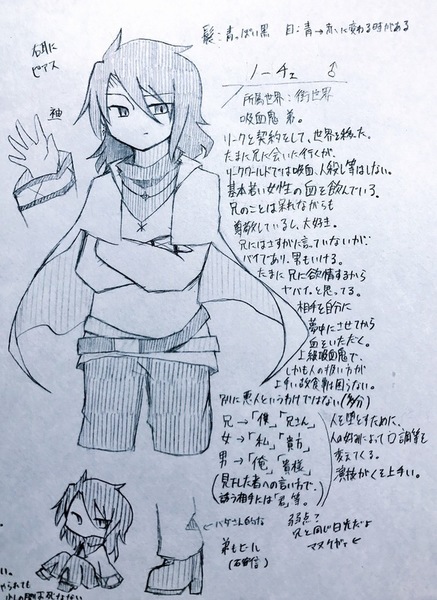 髪:青っぽい黒 目:青→赤に変わる時がある
右耳に
ピアス
袖
ノーチェ ♂
所属世界:街世界
吸血鬼 弟。
リークと契約をして、世界を移った。
たまに兄に会いに行くが、
リークワールドでは吸血、人殺し等はしない。
基本若い女性の血を飲んでいる。
兄のことは呆れながらも
尊敬しているし、大好き。
兄にはさすがに言っていないが、
バイであり、男もいける。
たまに兄に欲情するから
ヤバイ。と思ってる。
相手を自分に
夢中にさせてから
血をいただく。
上級吸血鬼で、
しかも人の扱い方が
上手い故食事は困らない。
別に悪人というわけではない(多分)
兄→「僕」「兄さん」
女→「私」「貴方」
男→「俺」「貴様」
(見下した者への言い方で、
違う相手には「君」等。
人を堕とすために、
人の好みによって口調等を
変えてくる。
演技がくそ上手い。
弱点?
兄と同じ日光だよ
マヌケがァ
弟もヒール